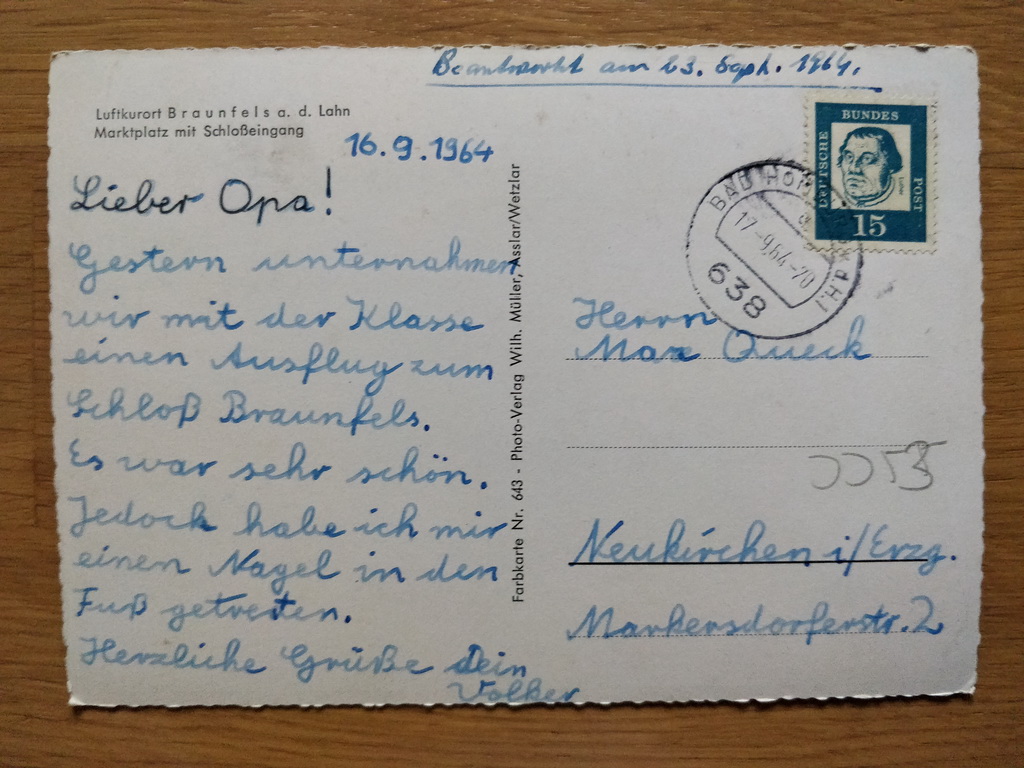 Beantwortet am 23. Sept. 1964.
Luftkurort Braunfels a. d. Lahn
Marktplatz mit Schloßeingang
16.9.1964
Lieber Opa!
Gestern unternahmen
wir mit der Klasse
einen Ausflug zum
Schloß Braunfels.
Es war sehr schön.
Jedoch habe ich mir
einen Nagel in den
Fuß getreten.
Herzliche Grüße Dein
Volker
Farbkarte Nr. 643 - Photo-Verlag Wilh. Müller, Asslar/Wetzlar
DEUTSCHE BUNDES POST
15
BAD HOM
17.-9.64-20
638
Herrn
Max Queck
Neukirchen i/Erzg.
Markersdorferstr. 2